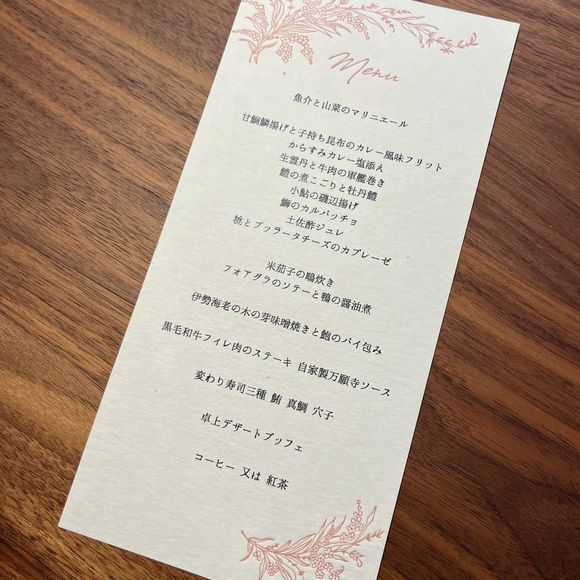 Menu
魚介と山菜のマリニエール
甘鯛鱗揚げと子持ち昆布のカレー風味フリット
からすみカレー塩添え
生雲丹と牛肉の軍艦巻き
鱧の煮こごりと牡丹鱧
小鮎の磯辺揚げ
鰤のカルパッチョ
土佐酢ジュレ
桃とブッラータチーズのカプレーゼ
米茄子の鴫炊き
フォアグラのソテーと鴨の醤油煮
伊勢海老の木の芽味噌焼きと鮑のパイ包み
黒毛和牛フィレ肉のステーキ 自家製万願寺ソース
変わり寿司三種 鮪 真鯛 穴子
卓上デザートブッフェ
コーヒー 又は 紅茶